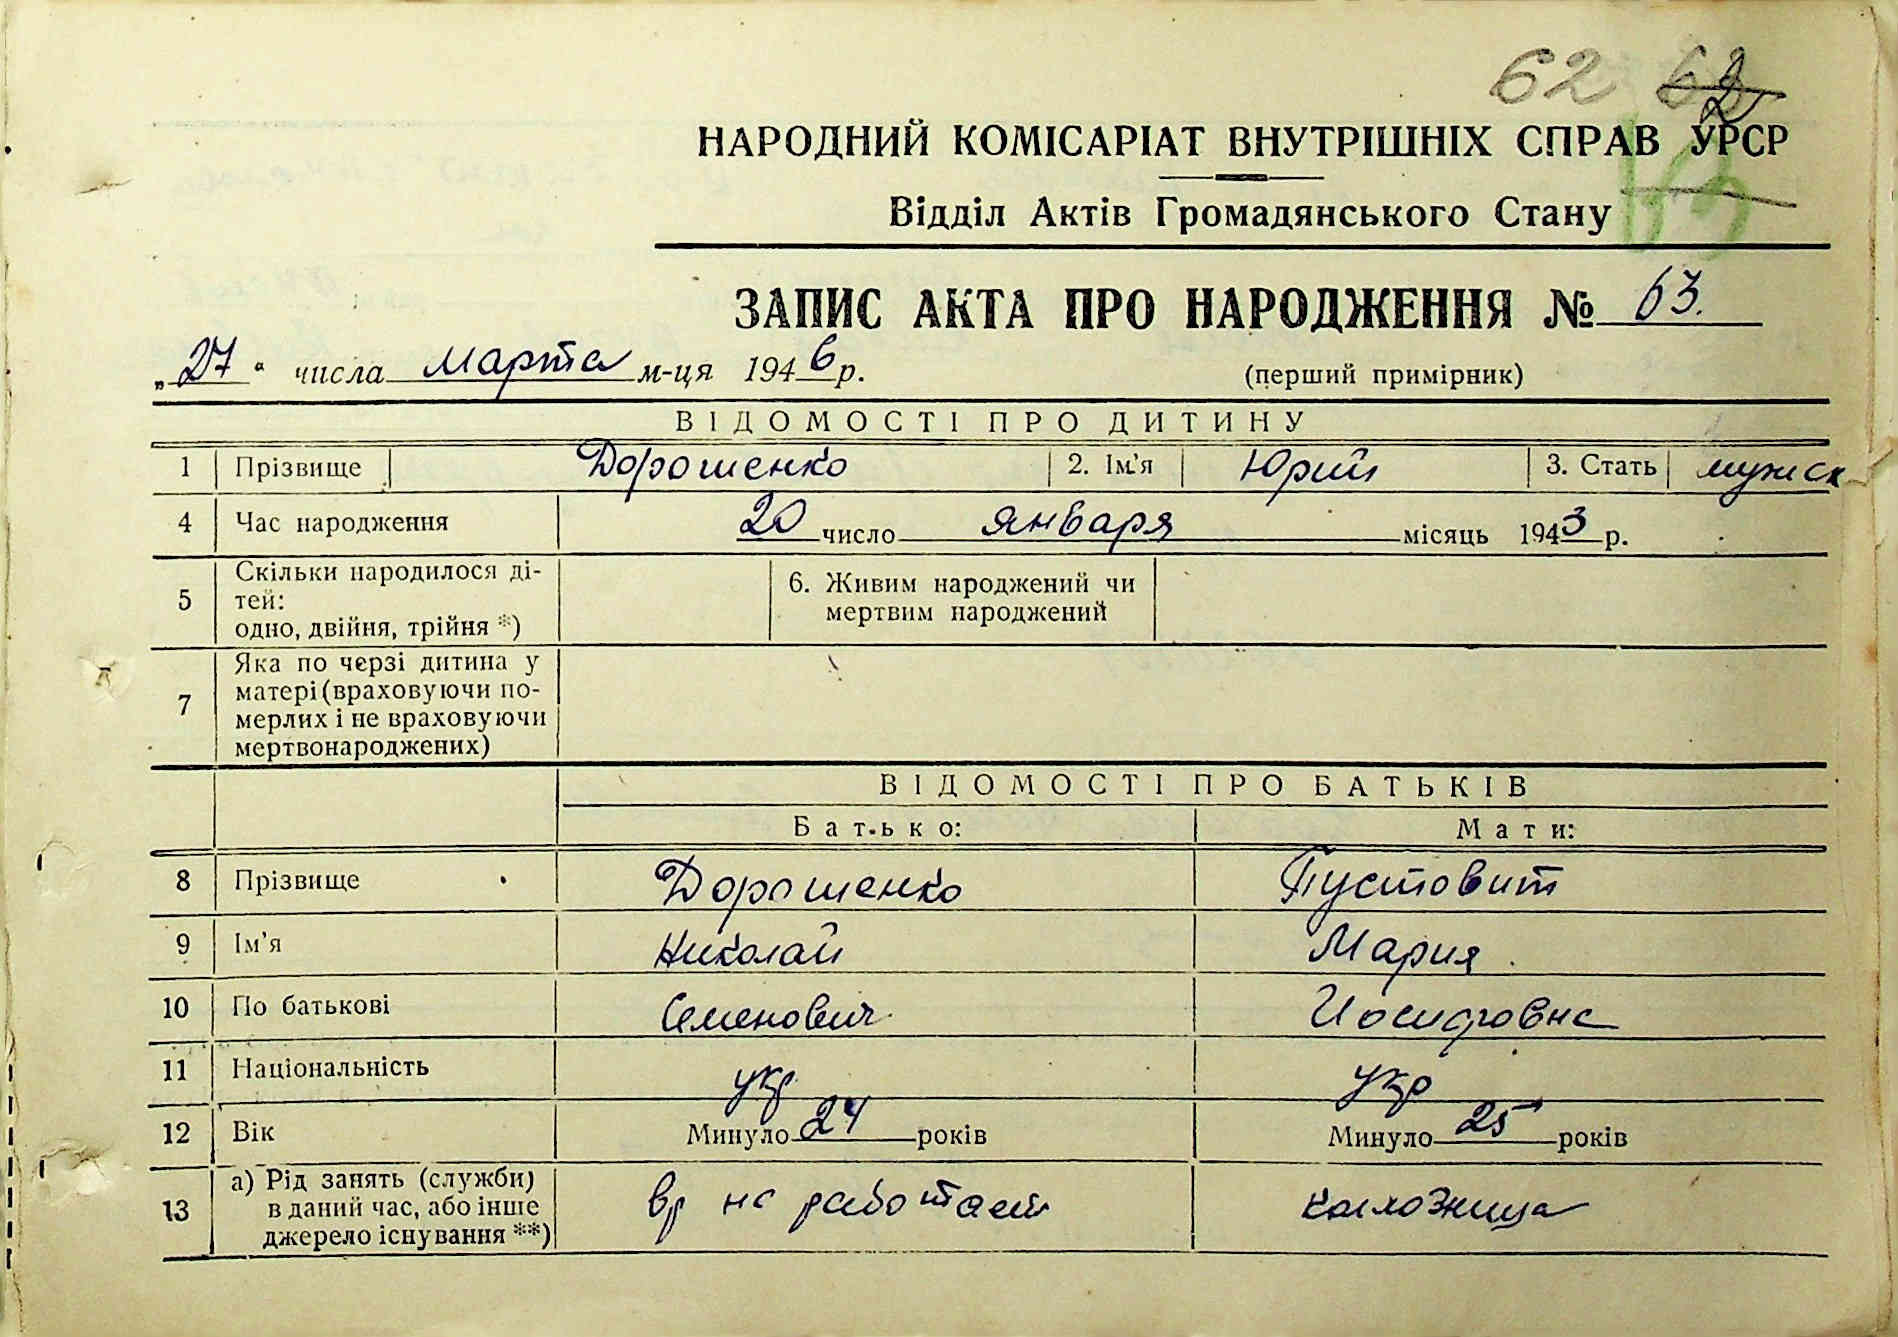 62 62
НАРОДНИЙ КОМІСАРІАТ ВНУТРІШНІХ СПРАВ УРСР
Відділ Актів Громадянського Стану
ЗАПИС АКТА ПРО НАРОДЖЕННЯ № 63.
„27“ числа марта м-ця 1946 р.
(перший примірник)
ВІДОМОСТІ ПРО ДИТИНУ
1 Прізвище Дорошенко 2. Ім'я Юрий 3. Стать мужск
4 Час народження 20 число января місяць 1943 р.
5 Скільки народилося ді-
тей:
одно, двійня, трійня *)
6. Живим народжений чи
мертвим народжений
7 Яка по черзі дитина у
матері (враховуючи по-
мерлих і не враховуючи
мертвонароджених)
ВІДОМОСТІ ПРО БАТЬКІВ
Батько: Мати:
8 Прізвище Дорошенко Пустовит
9 Ім'я Николай Мария
10 По батькові Семенович Иосифовна
11 Національність укр укр
12 Вік Минуло 24 років Минуло 25 років
13 а) Рід занять (служби)
в даний час, або інше
джерело існування **)
вр не работает колхозница